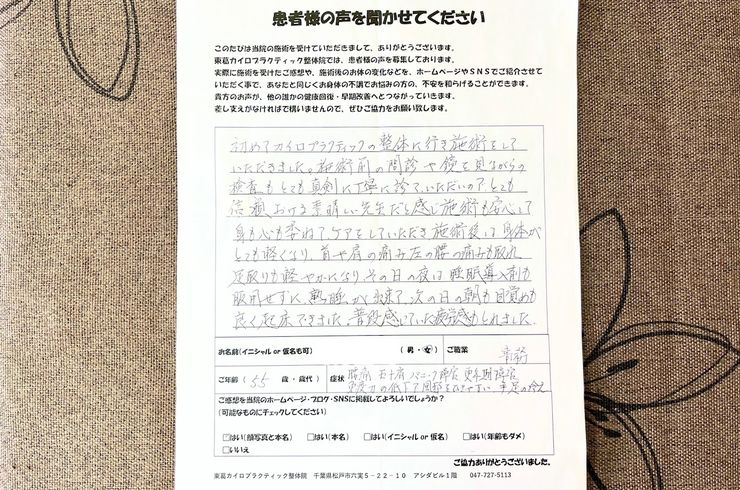 患者様の声を聞かせてください
このたびは当院の施術を受けていただきまして、ありがとうございます。
東葛カイロプラクティック整体院では、患者様の声を募集しております。
実際に施術を受けたご感想や、施術後のお体の変化などを、ホームページやSNSでご紹介させて
いただく事で、あなたと同じくお身体の不調でお悩みの方の、不安を和らげることができます。
貴方のお声が、他の誰かの健康回復・早期改善へとつながっていきます。
差し支えがなければで構いませんので、ぜひご協力をお願い致します。
初めてカイロプラクティックの整体に行き施術をして
いただきました。施術前の問診や鏡を見ながらの
検査もとても真剣に丁寧に診ていただいので とても
信頼おける素晴しい先生だと感じ施術も安心して
身も心も委ねてケアをしていただき施術後は身体が
とても軽くなり、首や肩の痛み左の腰の痛みも取れ
足取りも軽やかになり、その日の夜は睡眠導入剤も
服用せずに、熟睡が出来て次の日の朝も目覚めも
良く起床できました。普段感じていた疲労感もとれました。
お名前(イニシャル or 仮名も可) (男・女) ご職業
ご年齢 ( 55 歳・歳代) 症状 腰痛 五十肩 パニック障害 更年期障害
免疫力の低下 風邪をひきやすい 手足の冷え
ご感想を当院のホームページ・ブログ・SNSに掲載してよろしいでしょうか?
(可能なものにチェックしてください)
□はい(顔写真と本名) □はい(本名) □はい(イニシャル or 仮名) □はい(年齢もダメ)
□いいえ
ご協力ありがとうございました。
東葛カイロプラクティック整体院 千葉県松戸市六実5-22-10 アシダビル1階 047-727-5113